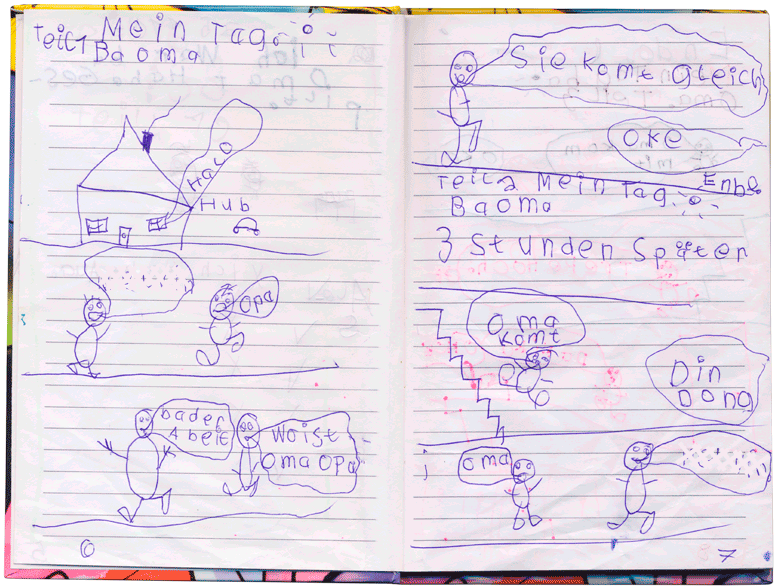 Teil 1 Mein Tag.
Baoma
Halo
Hub
Opa
bader
Abeit
Woist
Oma Opa
6
Sie komt gleich
Oke
Teil 2 Mein Tag. Enbe
Baoma
3 Stunden Später
Oma
komt
Din
Dong
Oma
7